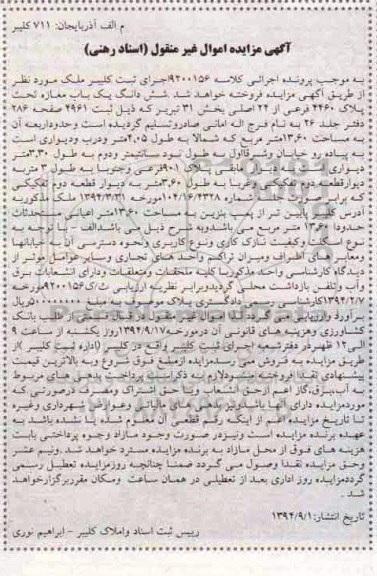 م الف آذربایجان: ۷۱۱ کلیبر
آگهی مزایده اموال غیر منقول (اسناد رهنی)
به موجب پرونده اجرائی کلاسه ۹۲۰۰۱۵۶اجرای ثبت کلیبر ملک مورد نظر
از طریق آگهی مزایده فروخته خواهد شد. شش دانگ یک باب مغازه تحت
پلاک ۴۴۶۰ فرعی از ۲۲ اصلی بخش ۳۱ تبریز که ذیل ثبت ۴۹۶۱ صفحه ۲۸۶
دفتر جلد ۲۶ به نام فرج اله امانی صادروتسلیم گردیده است وحدوداربعه آن
به مساحت ۱۳٫۶۰متر مربع که شمالا به طول ۲٫۰۵متر ودرب ودیواری است
به پیاده رو خیابان وشرقاول به طول نود سانتیمتر ودوم به طول ۳٫۳۰متر
دیواری مابقی پلاک ۹۰۱فرعی وجنوبا به طول ۳ متربه
دیوارقطعه دوم تفکیکی وغربا به طول ۳٫۶۰متر به دیوار قطعه دوم تفکیکی
که برابر شماره ۱۰۴/۱۶/۴۳۲۸مورخه ۱۳۹۴/۳/۳ ملک مذکوربه
آدرس کلیبر پایین تر از پمپ بنزین به مساحت ۱۳٫۶۰متر اعیانی مستحدثات
حدودا ۱۳٫۶۰ متر مربع می باشدوبه شرح ذیل می باشد:الف - با توجه به
نوع اسکلت وکیفیت نازک کاری ونوع کاربری ونحوه دسترسی آن به خیابانها
ومعابر های اطراف ومیزان تراکم واحد های تجاری وسایر عوامل موثر از
دیدگاه کارشناسی واحد مذکوربا کلیه ملحقات ومتعلقات ودارای انشعابات برق
وآب وتلفن بازداشت محلی گردیدوبرابر نظریه ارزیابی ث/ک۹۲۰۰۱۵۶مورخه
۱۳۹۴/۲/۷کارشناسی رسمی دادگستری پلاک موصوف به مبلغ ۵۰۰۰۰۰۰۰۰ریال
برآورد وارزیابی می گردد که اموال غیر منقول در قبال قسمتی از طلب بانک
کشاورزی وهزینه های قانونی آن درمورخه۱۳۹۴/۹/۱۷روز یکشنبه از ساعت ۹
الی۱۲ ظهردر دفترشعبه اجرای ثبت کلیبر واقع در کلیبر (اداره ثبت کلیبر )از
طریق مزایده به فروش می رسدمزایده ازمبلغ فوق شروع وبه بالاترین قیمت
پیشنهادی نقدا فروخته میشودلازم به ذکراست پرداخت بدهی های مربوط
به آب،برق،گاز اعم ازحق انشعاب یا حق اشتراک ومصرف درصورتی که
موردمزایده دارای آنها باشدونیزبدهی های مالیاتی وعوارض شهرداری وغیره
تا تاریخ مزایده اعم از اینکه رقم قطعی آن معلوم شده یا نشده باشد به
عهده برنده مزایده است ونیزدر صورت وجود مازاد وجوه پرداختی بابت
هزینه های فوق از محل مازاد به برنده مزایده مسترد خواهد شد.ونیم عشر
وحق مزایده نقدا وصول می گردد ضمنا چنانچه روزمزایده تعطیل رسمی
گرددمزایده روز اداری بعد از تعطیلی در همان ساعت ومکان مقرربرگزارخواهد
شد .
تاریخ انتشار:۱۳۹۴/۹/۱
رییس ثبت اسناد واملاک کلیبر - ابراهیم نوری